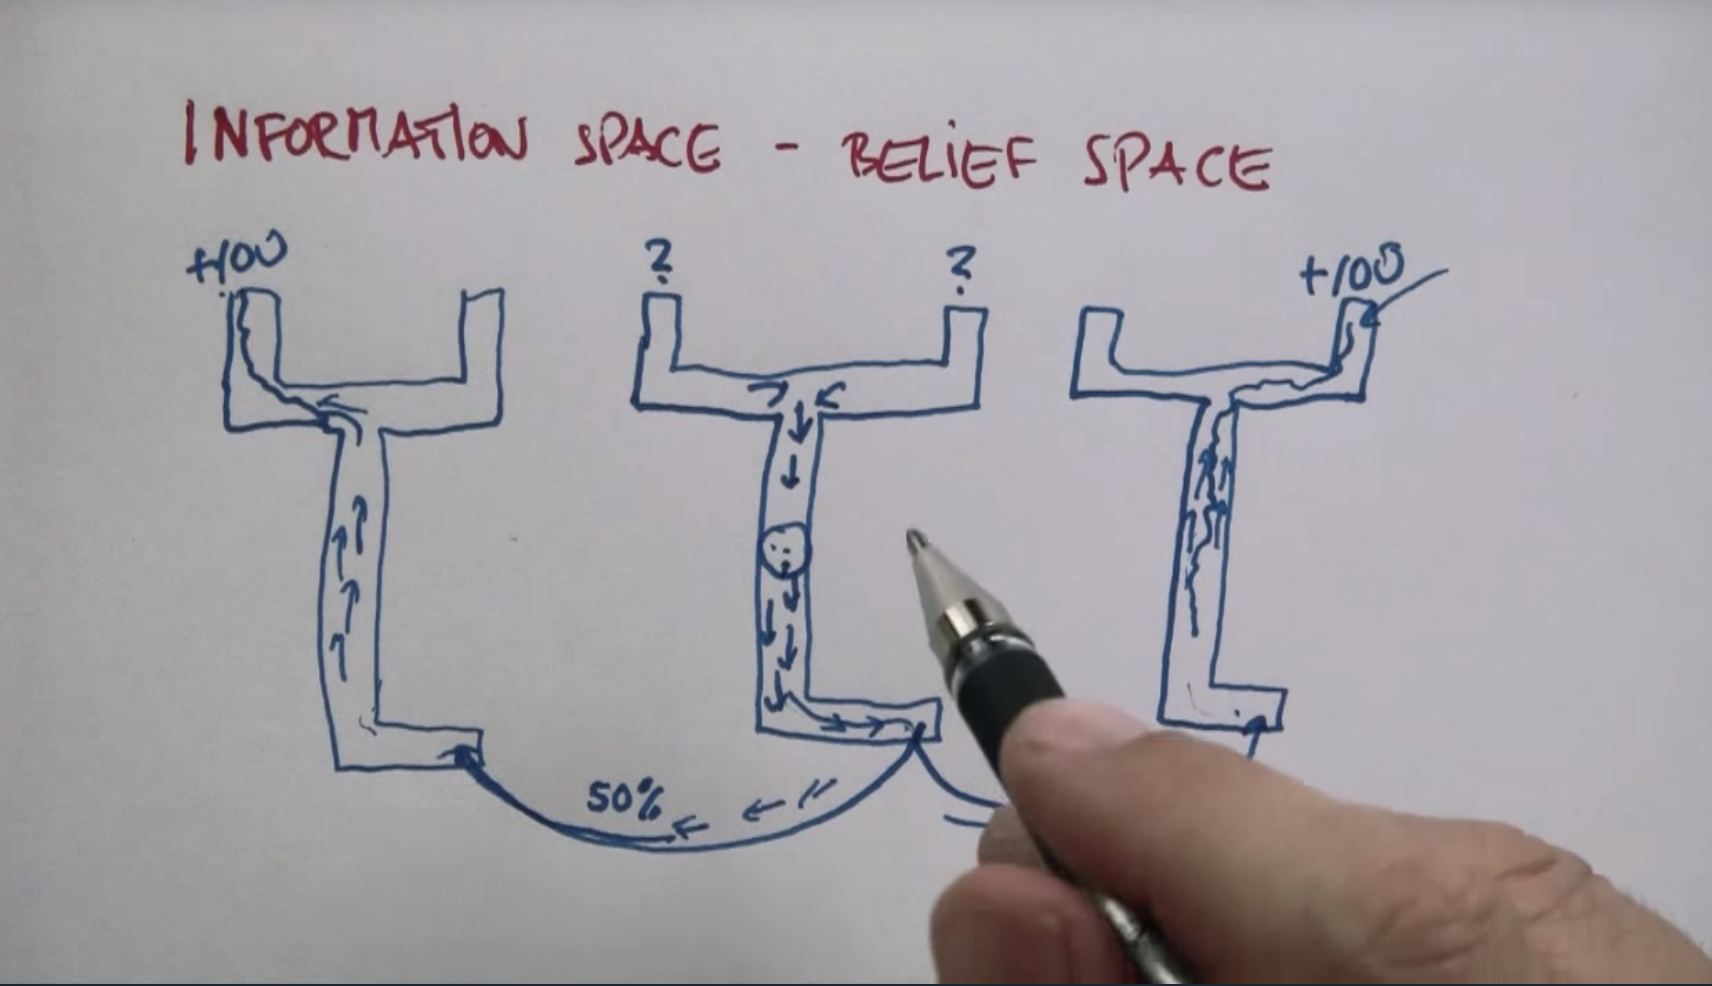 INFORMATION SPACE - BELIEF SPACE
+100
?
?
+100
50%